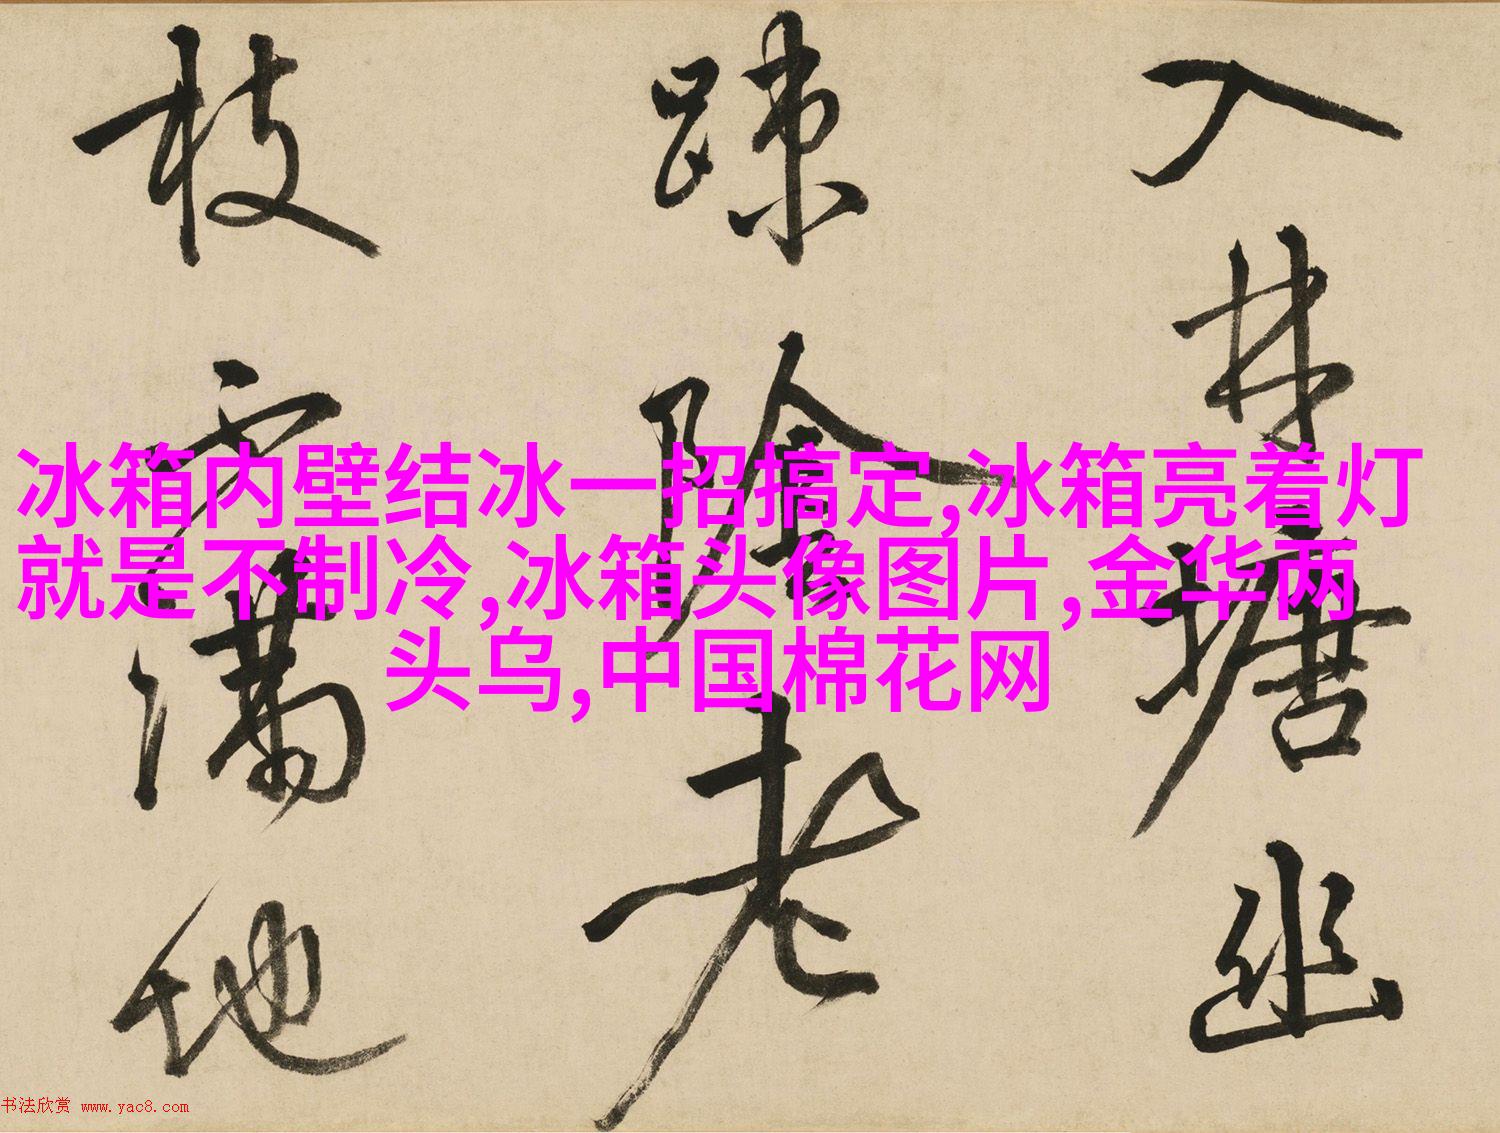 冰箱内壁结冰一招搞定,冰箱亮着灯
就是不制冷,冰箱头像图片,金华两
头乌,中国棉花网
入林塘幽
踈陰老
枝满地
书法欣赏 www.yac8.com